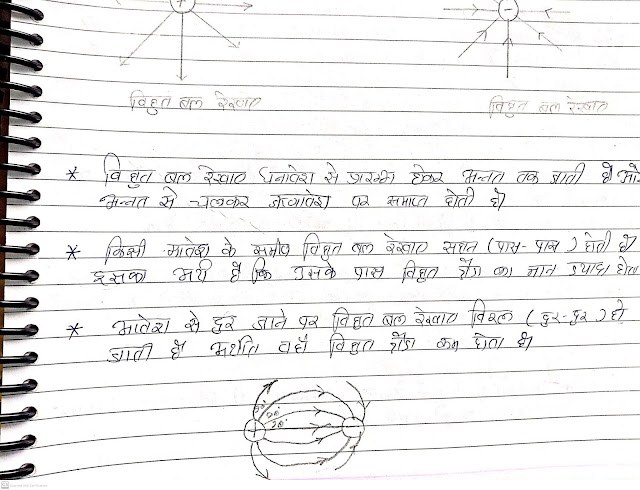 +
−
विद्युत बल रेखाए
विद्युत बल रेखाए
* विद्युत बल रेखाए धनावेश से प्रारम्भ होकर अनन्त तक जाती है और
अनन्त से चलकर ऋणावेश पर समाप्त होती है।
* किसी आवेश के समीप विद्युत बल रेखाए सघन (पास-पास) होती है।
इसका अर्थ है कि उसके पास विद्युत क्षेत्र का मान ज्यादा होता
* आवेश से दूर जाने पर विद्युत बल रेखाए विरल (दूर-दूर) हो
जाती है अर्थात वहाँ विद्युत क्षेत्र कम होता है।
+ −